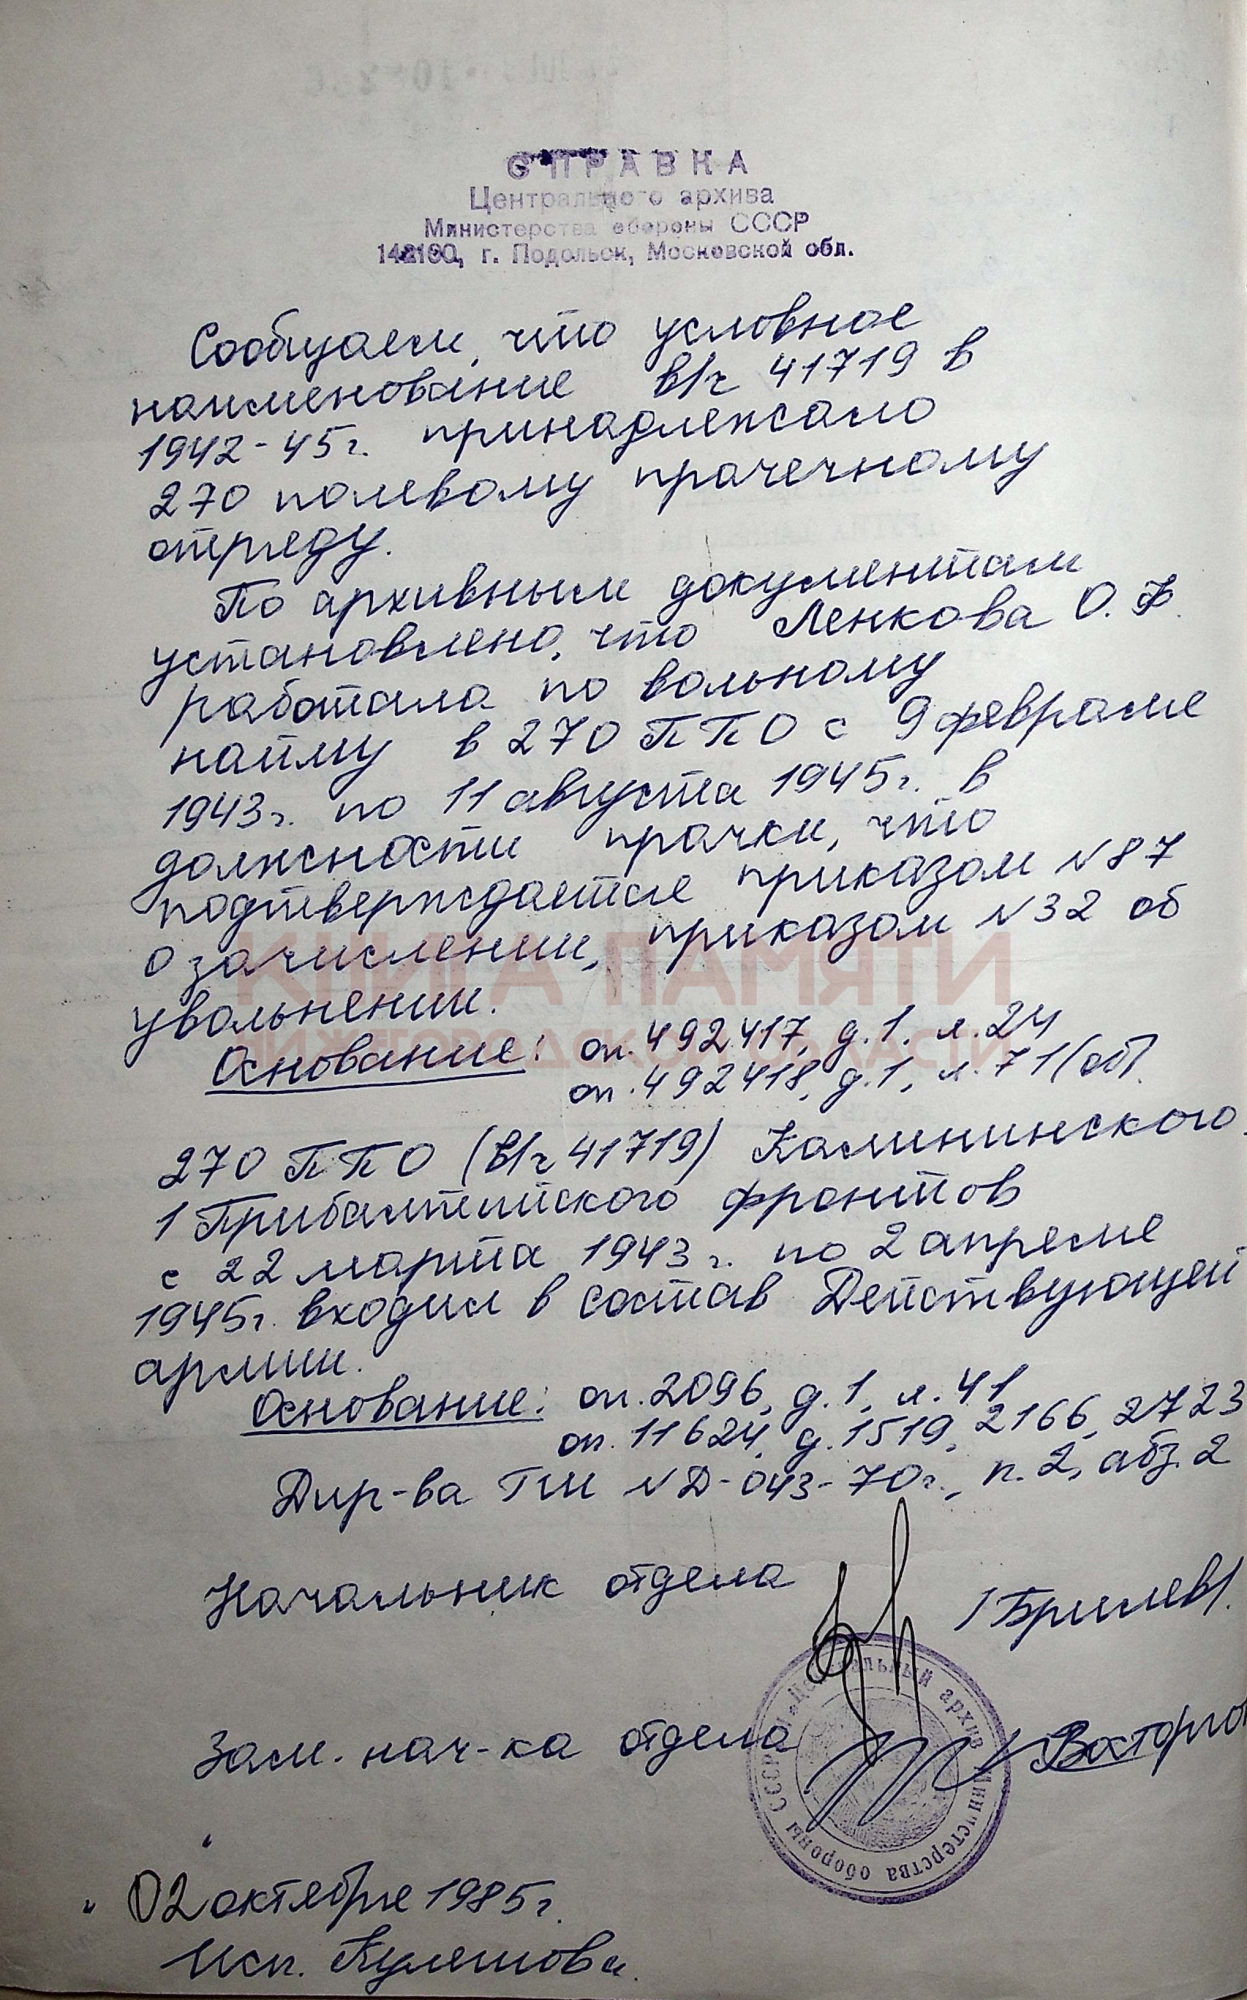 СПРАВКА
Центрального архива
Министерства обороны СССР
142100, г. Подольск, Московской обл.
Сообщаем, что условное
наименование в/ч 41719 в
1942-45г. принадлежало
270 полевому прачечному
отряду.
По архивным документам
установлено, что Ленкова О. Ф.
работала по вольному
найму в 270 ППО с 9 февраля
1943г. по 11 августа 1945г. в
должности прачки, что
подтверждается приказом №87
о зачислении, приказом №32 об
увольнении.
КНИГА ПАМЯТИ
НИЖЕГОРОДСКОЙ ОБЛАСТИ
Основание: оп. 492417, д.1. л.24
оп. 492418, д.1, л.71(об).
270 ППО (в/ч 41719) Калининского
1 Прибалтийского фронтов
с 22 марта 1943г. по 2 апреля
1945г. входил в состав Действующей
армии.
Основание: оп.2096, д.1, л.41
оп. 11624, д.1519, 2166, 2723
Дир-ва ГШ №Д-043-70г., п.2, абз.2
Начальник отдела /Брилев/.
Зам. нач-ка отдела
Центральный архив Министерства обороны СССР
" 02 октября 1985г.
Исп. Кулешова.